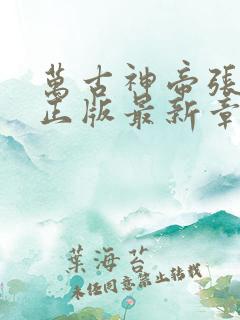 萬古神帝張
正版最新章
葉海苔
未經同意禁止轉載